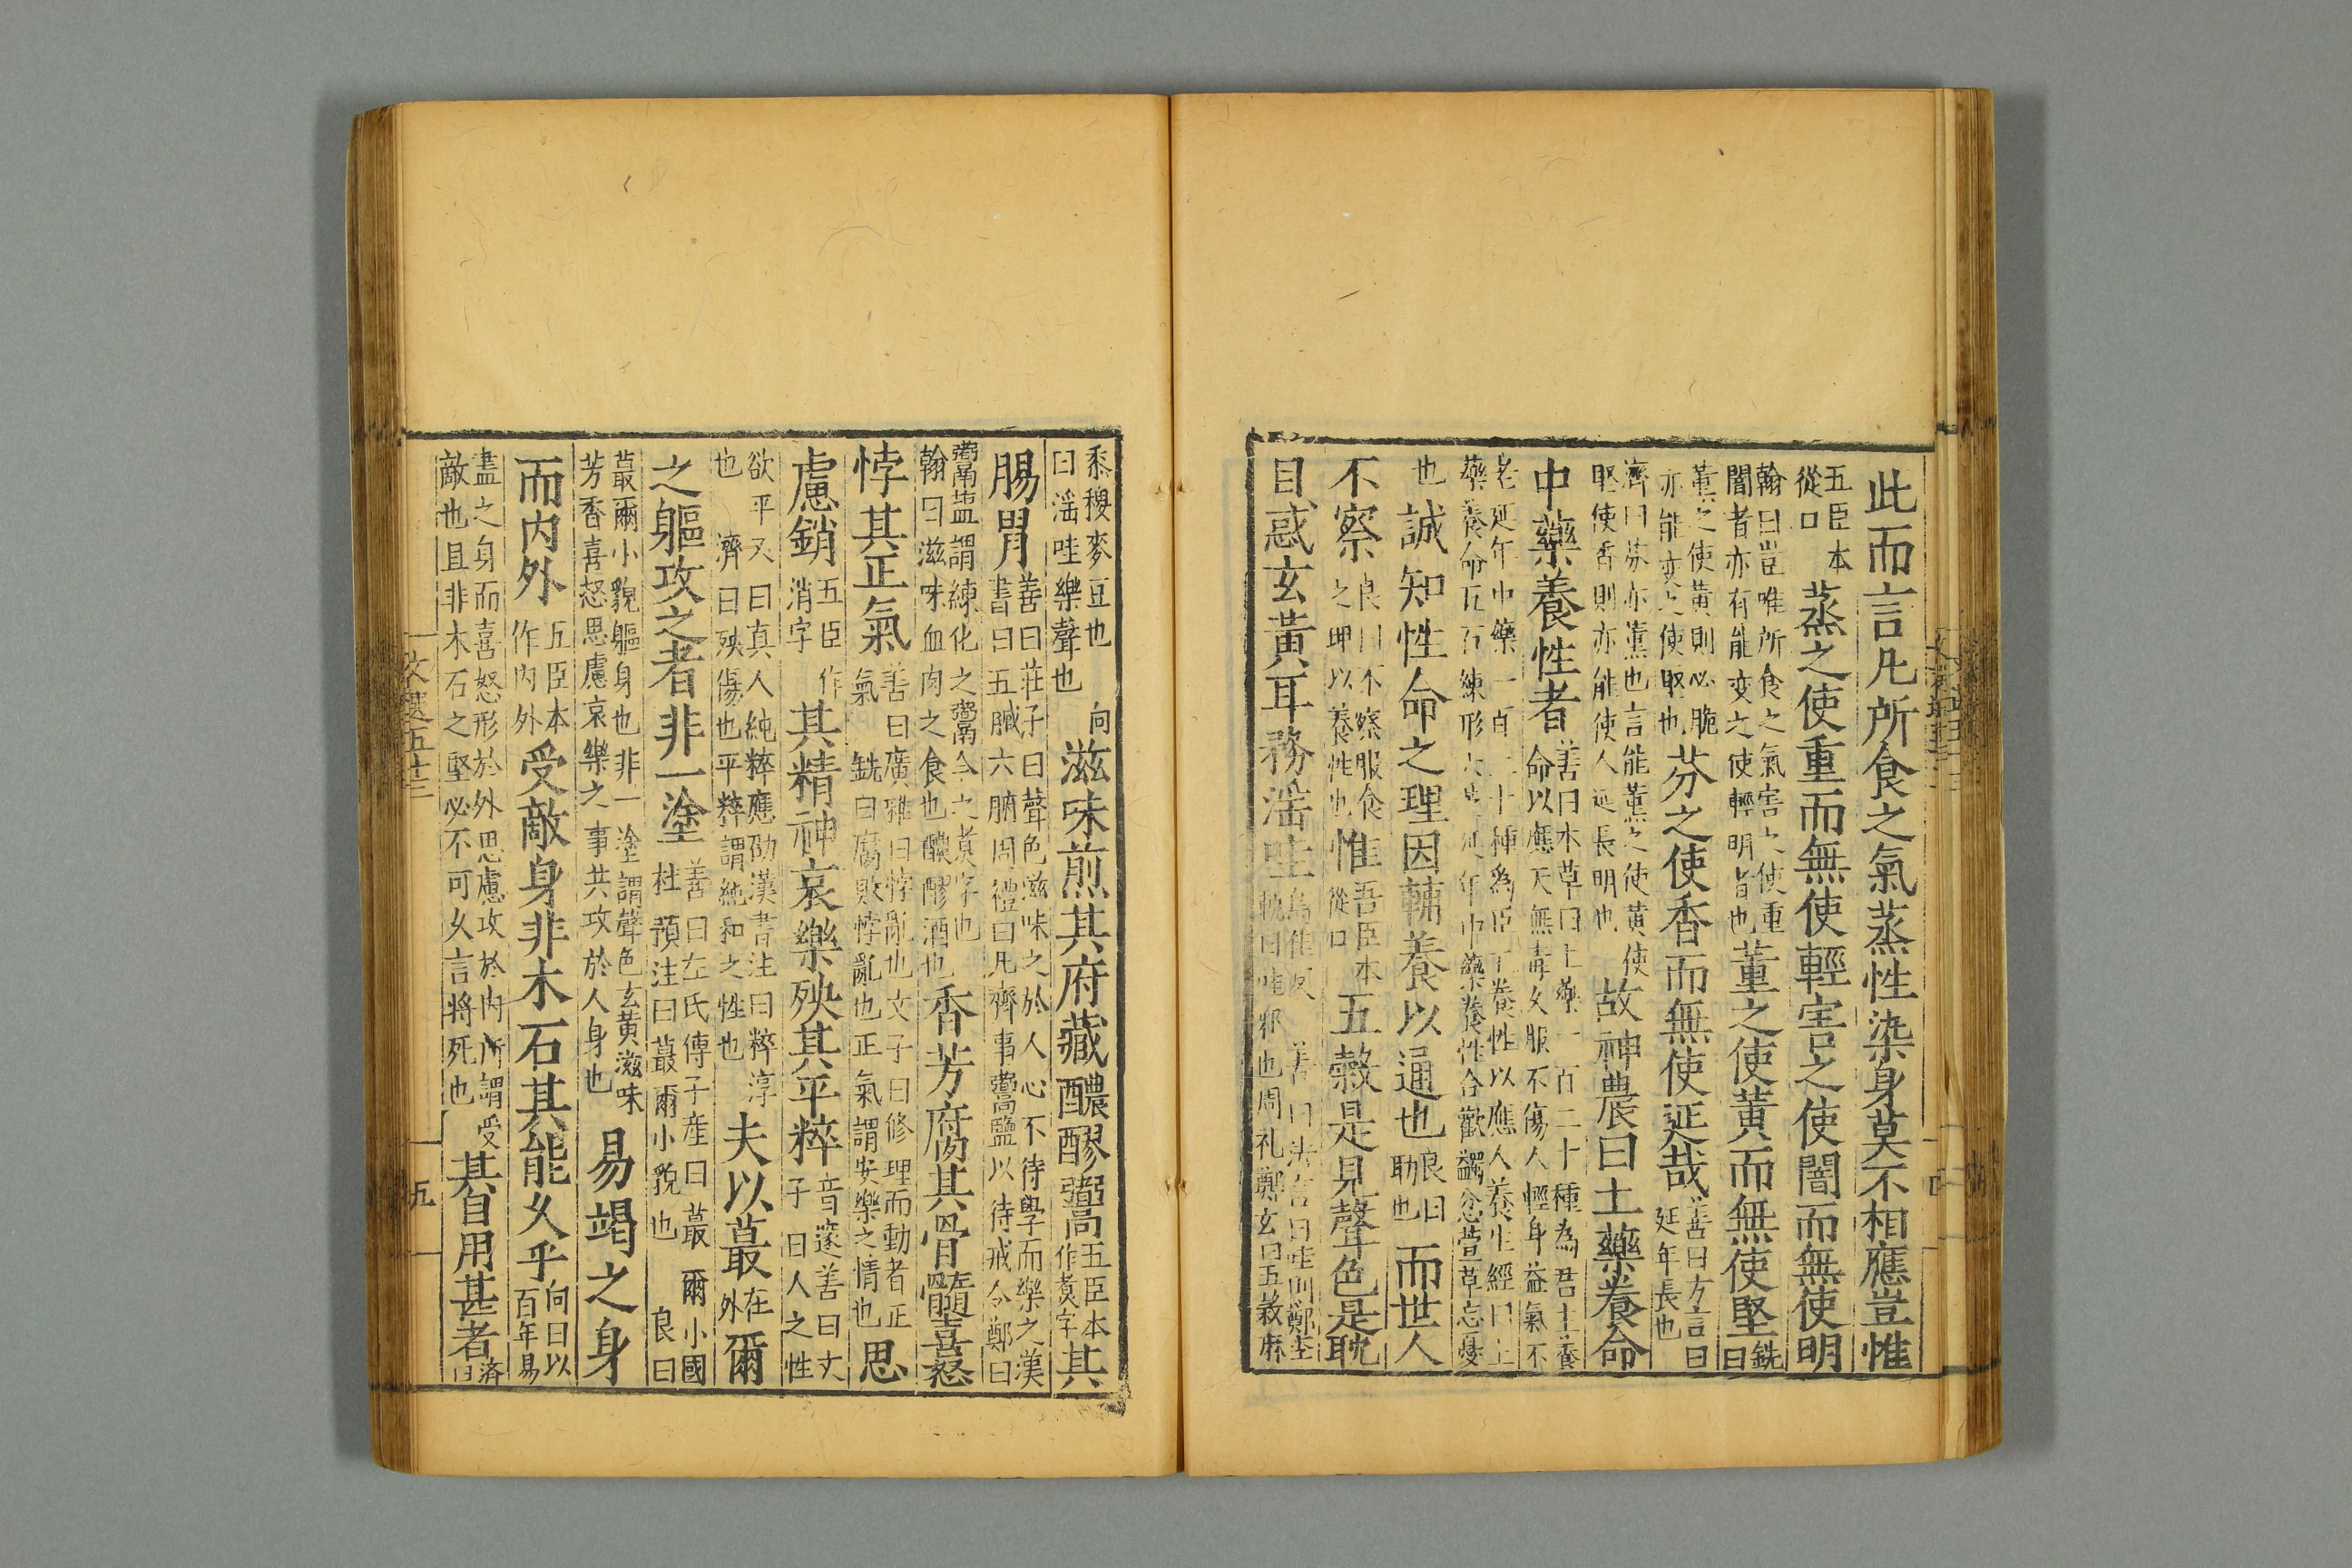 此而言凡所食之氣蒸性染身莫不相應豈惟
五臣本從口蒸之使重而無使輕害之使闇而無使明
翰曰豈唯所食之氣害之使重闇者亦有能变之使輕明者也薰之使黃而無使堅銑曰
薰之使黃則必脆亦能变之使堅也芬之使香而無使延哉善曰方言曰延年長也
濟曰芬亦薰也言能薰之使黃使堅使香則亦能使人延長明也故神農曰上藥養命
中藥養性者善曰本草曰上藥一百二十種為君主養命以應天無毒久服不傷人輕身益氣不
老延年中藥一百二十種為臣主養性以應人養生經曰上藥養命五石練形六芝延年中藥養性合歡蠲忿萱草忘憂
也誠知性命之理因輔養以通也良曰助也而世人
不察良曰不察服食之理以養性也惟五臣本從口五穀是見聲色是耽
目惑玄黃耳務淫哇烏佳反善曰法言曰哇則鄭李軌曰哇邪也周礼鄭玄曰五穀麻
黍稷麥豆也向曰淫哇樂聲也滋味煎其府藏醴醪鬻五臣本作煑字其
腸胃善曰莊子曰聲色滋味之於人心不待學而樂之漢書曰五臟六腑周禮曰凡齊事鬻鹽以待戒令鄭曰
鬻盬謂練化之鬻今之煑字也翰曰滋味血肉之食也醴醪酒也香芳腐其骨髓喜怒
悖其正氣善曰廣雅曰悖亂也文子曰修理而動者正氣銑曰腐敗悖亂也正氣謂安樂之情也思
慮銷五臣作消字其精神哀樂殃其平粹音邃善曰文子曰人之性
欲平又曰真人純粹應劭漢書注曰粹淳也濟曰殃傷也平粹謂純和之性也夫以蕞在外爾
之軀攻之者非一塗善曰左氏傳子產曰蕞爾小國杜預注曰蕞爾小貌也良曰
蕞爾小貌軀身也非一塗謂聲色玄黃滋味芳香喜怒思慮哀樂之事共攻於人身也易竭之身
而內外五臣本作內外受敵身非木石其能久乎向曰以百年易
盡之身而喜怒形於外思慮攻於內所謂受敵也且非木石之堅必不可久言將死也其自用甚者濟曰
文選五十三
五